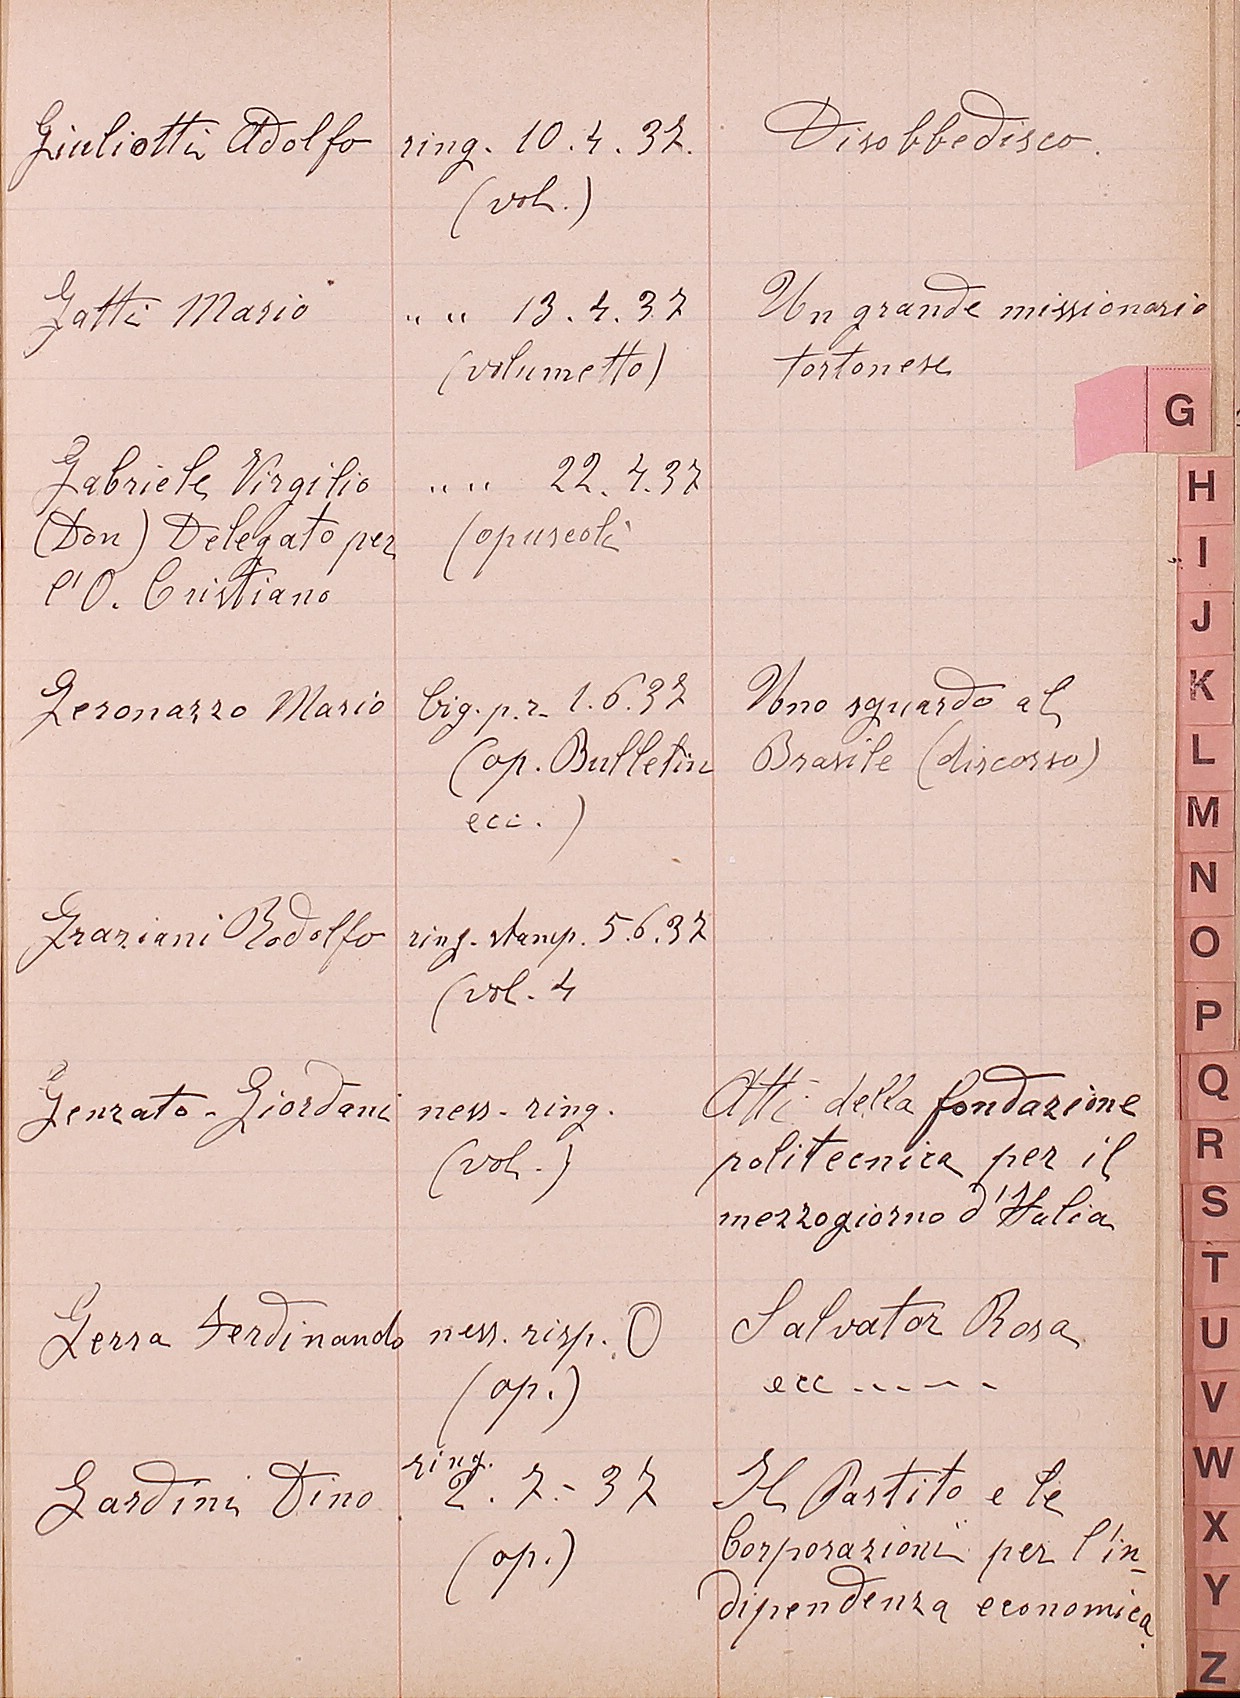 Giuliotti Adolfo ring. 10.4.37. Disobbedisco.
(vol.)
Gatti Mario " " 13.4.37 Un grande missionario
(volumetto) tortonese
G
Gabriele Virgilio " " 22.4.37
H
(Don) Delegato per (opuscoli
I
l'O. Cristiano
J
Geronazzo Mario big. p. r. 1.6.37 Uno sguardo al
K
(op. Bulletin Brasile (discorso)
L
ecc.)
M
N
Graziani Rodolfo ring. stamp. 5.6.37
O
(vol. 4
P
Genzato - Giordani ness. ring. Atti della fondazione
Q
(vol.) politecnica per il
R
mezzogiorno d'Italia
S
T
Gerra Ferdinando ness. risp. O Salvator Rosa
U
(op.) ecc -----
V
ring.
W
Gardini Dino 2.7.-37 Il Partito e le
X
(op.) Corporazioni per l'in-
Y
dipendenza economica.
Z